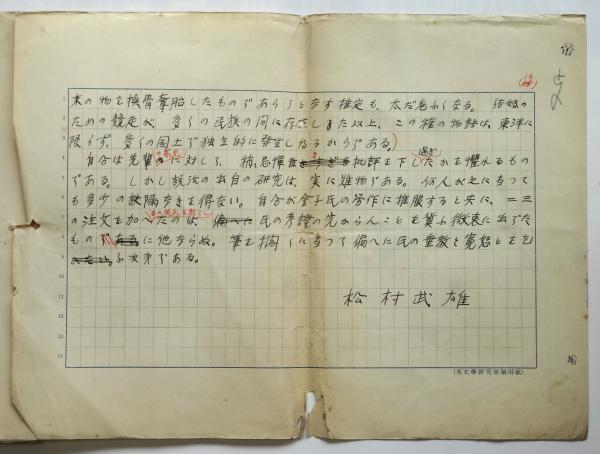 末の物を換骨奪胎したものであらうとなす推定も、太だ危ふくなる。結婚の
ための競走が、多くの民族の間に存在しまた以上、この種の物語は、東洋に
限らず、多くの国土で独立的に発生しなるからである。)
自分は先輩の に対して、稍忌憚 批評を下し過ぎたかを懼れるもの
である。しかし説話の出自の研究は、実に難物である。何人が之に当つて
も多少の缺陥なきを得ない。自分が金子氏の労作に推服すると共に、二三
の注文を加へたのは、 氏の考證の完からんことを冀ふ微衷に出でた
もの に他ならぬ。筆を擱くに当つて偏へに氏の垂教と寛恕とを乞
ふ次第である。
松村武雄
(英文學研究原稿用紙)